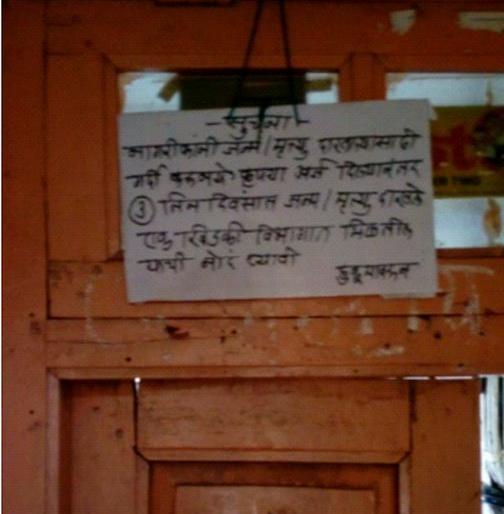 - सुचना -
नागरीकांनी जन्म / मृत्यु दाखल्यासाठी
गर्दी करू नये कृपया अर्ज दिल्यानंतर
③ तिन दिवसात जन्म / मृत्यु दाखले
एक खिडकी विभागात मिळतील
याची नोंद घ्यावी